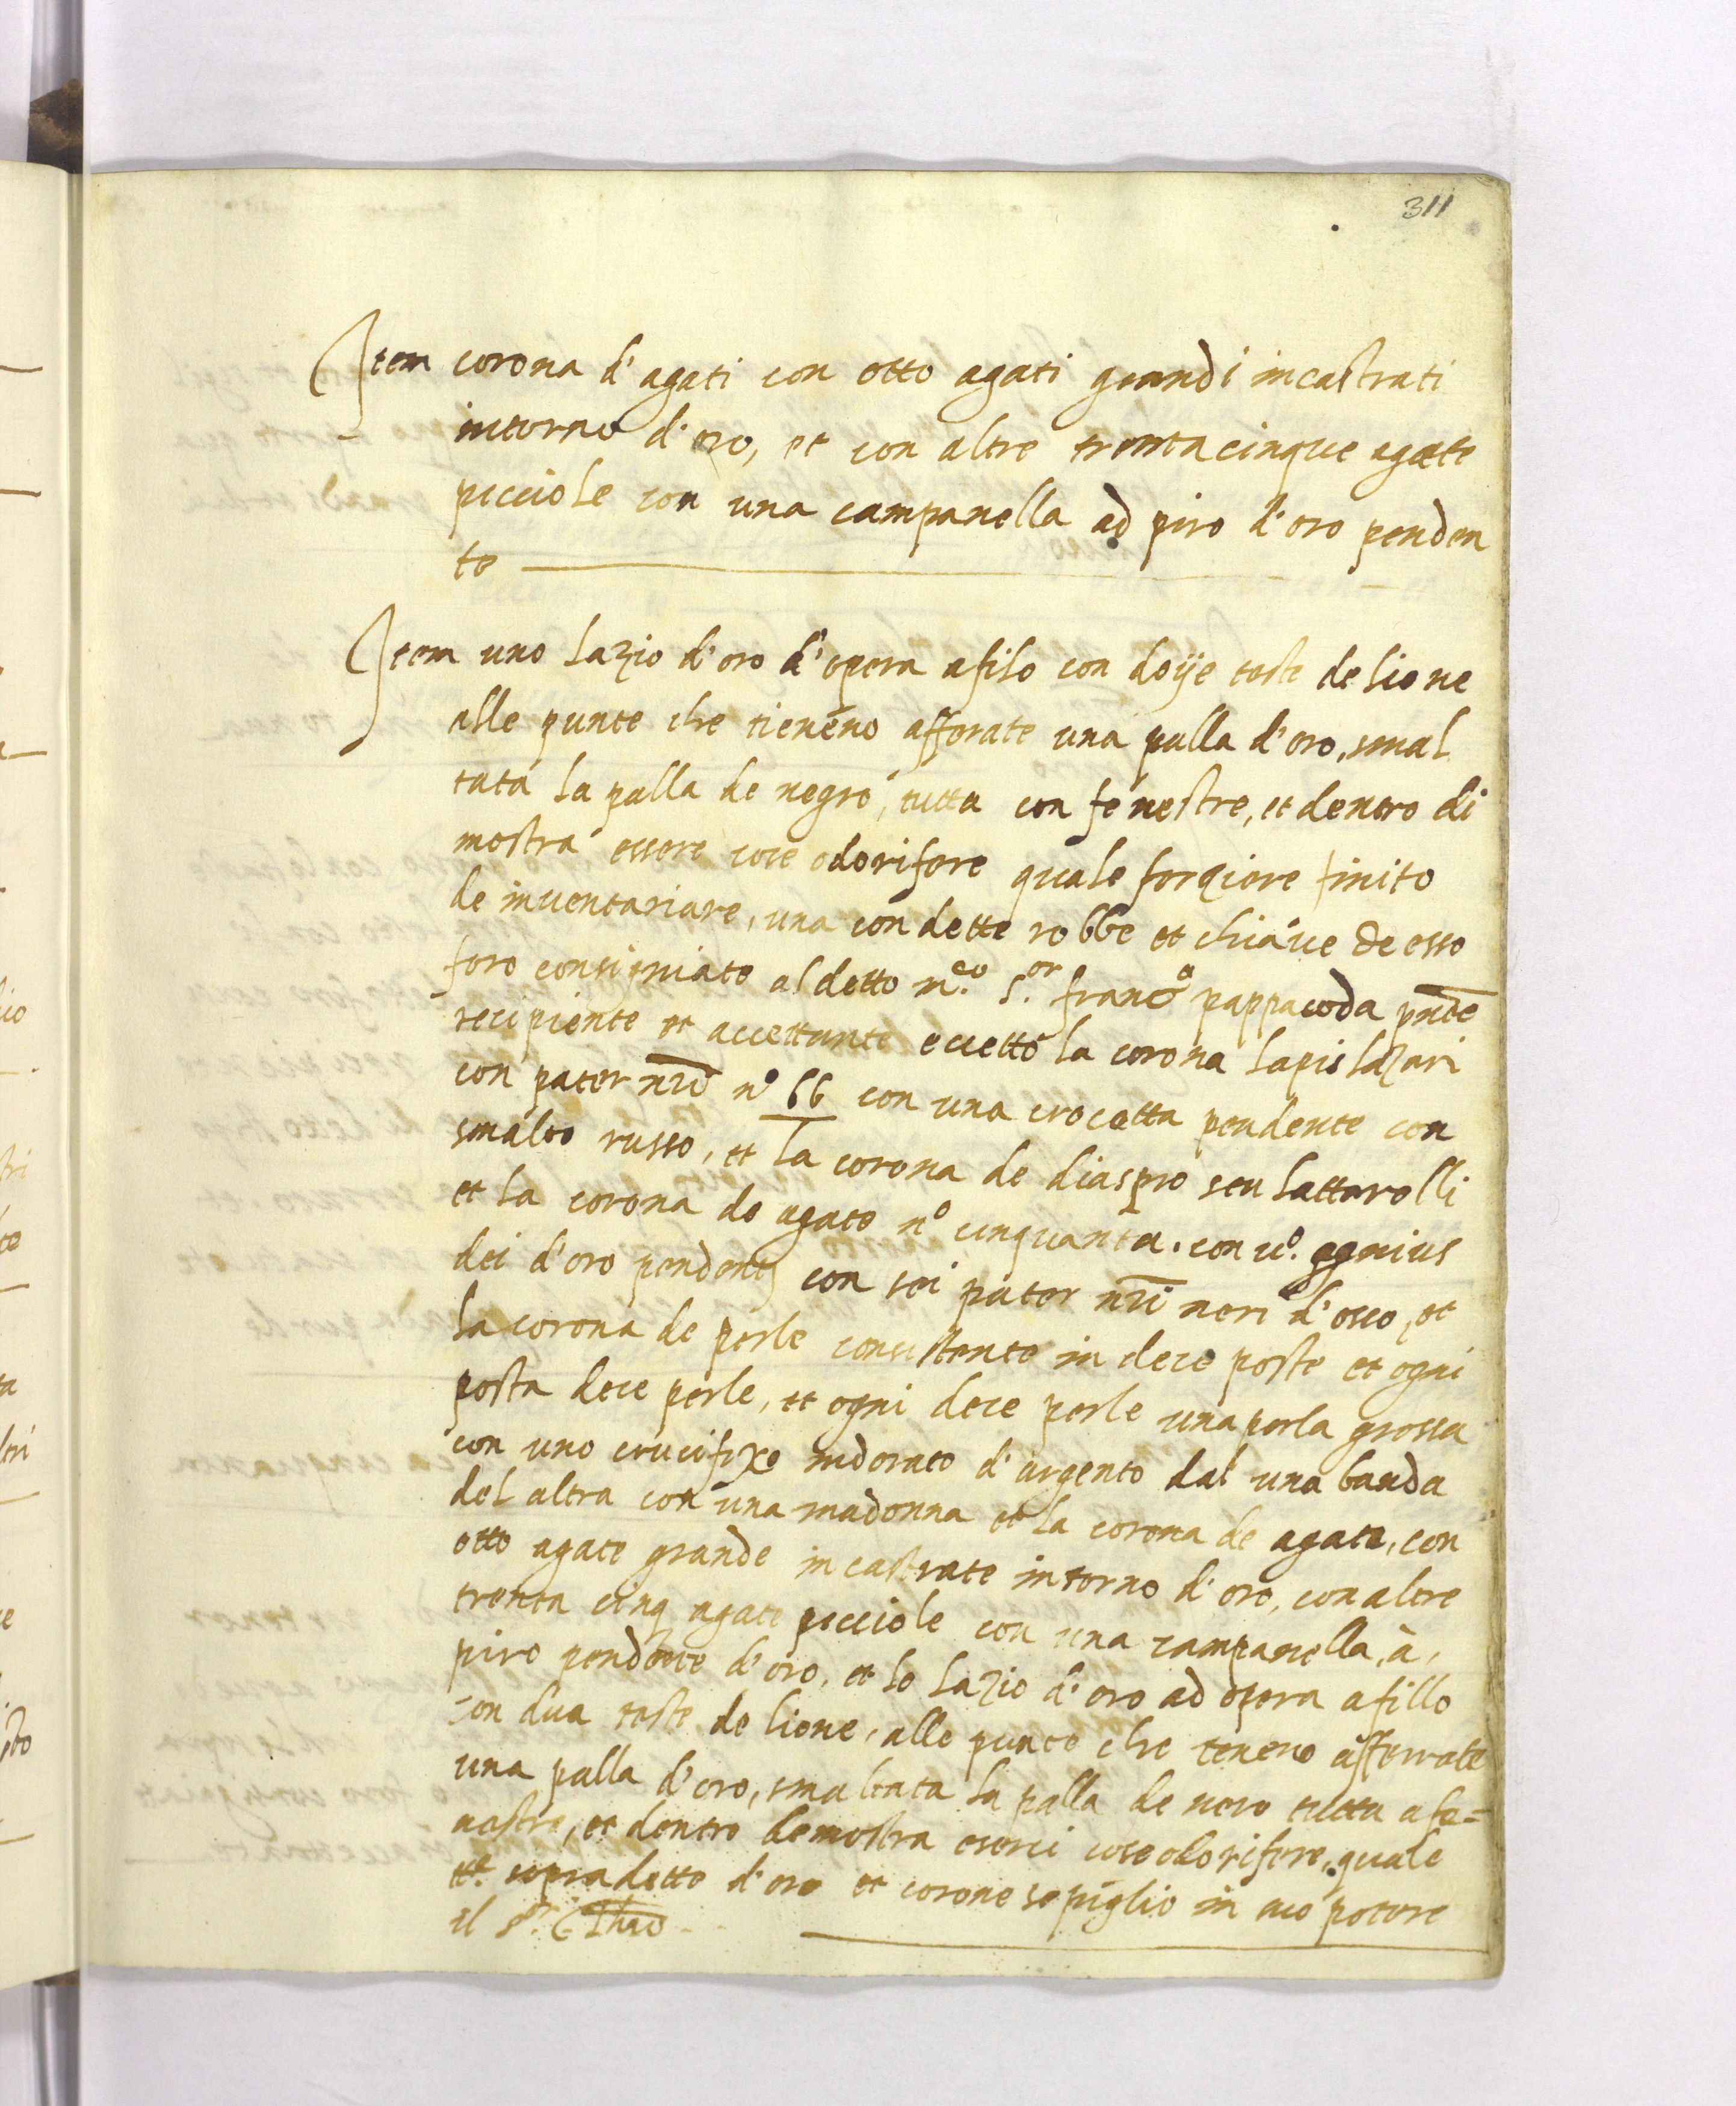 311
Item corona d'agati con otto agati grandi incastrati
intorno d'oro, et con altre trentacinque agate
picciole con una campanella ad piro d'oro penden
te
Item uno lazio d'oro d'opera afilo con doije teste de lione
alle punte che tieneno afferate una palla d'oro, smal
tata la palla de negro, tutta con fenestre, et dentro di
mostra essere cose odorifere quale forziere finito
de inventariare, una con dette robbe et chiave de esso
foro consigniate al detto m.co s.or franco pappacoda pnte
recipiente et accettante eccetto la corona lapis lazari
con pater nri no 66 con una crocetta pendente con
smalto russo, et la corona de diaspro seu lattarolli
et la corona de agate no cinquanta. con
dei d'oro pendenti con sei pater nri neri d'osso, et
la corona de perle consistente in dece poste et ogni
posta dece perle, et ogni dece perle una perla grossa
con uno crucifixo indorato d'argento dal una banda
del altra con una madonna et la corona de agata, con
otto agate grande incastrate intorno d'oro, con altre
trenta cinq agate picciole con una campanella, à,
piro pendente d'oro, et lo lazio d'oro ad opera afillo
con dua teste de lione, alle punte che teneno afferrate
una palla d'oro, smaltata la palla de nero tutta a fe=
nestre, et dentro demostra eserci cose odorifere, quale
sopradette d'oro et corone se piglio in suo potere
il s.r